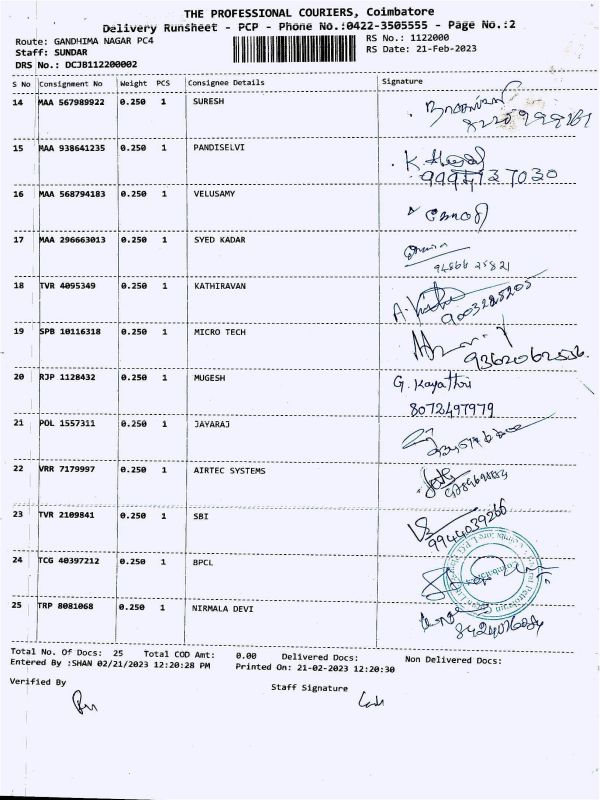 THE PROFESSIONAL COURIERS, Coimbatore
Delivery Runsheet - PCP - Phone No.:0422-3505555 - Page No.:2
Route: GANDHIMA NAGAR PC4 RS No.: 1122000
Staff: SUNDAR RS Date: 21-Feb-2023
DRS No.: DCJB112200002
S No Consignment No Weight PCS Consignee Details Signature
14 MAA 567989922 0.250 1 SURESH
15 MAA 938641235 0.250 1 PANDISELVI
16 MAA 568794183 0.250 1 VELUSAMY
17 MAA 296663013 0.250 1 SYED KADAR
94866 25821
18 TVR 4095349 0.250 1 KATHIRAVAN
9003225205
19 SPB 10116318 0.250 1 MICRO TECH
9362062506.
20 RJP 1128432 0.250 1 MUGESH G. Kayathri
8072497979
21 POL 1557311 0.250 1 JAYARAJ
22 VRR 7179997 0.250 1 AIRTEC SYSTEMS
23 TVR 2109841 0.250 1 SBI
9944039266
24 TCG 40397212 0.250 1 BPCL
25 TRP 8081068 0.250 1 NIRMALA DEVI
Total No. Of Docs: 25 Total COD Amt: 0.00 Delivered Docs: Non Delivered Docs:
Entered By :SHAN 02/21/2023 12:20:28 PM Printed On: 21-02-2023 12:20:30
Verified By Staff Signature